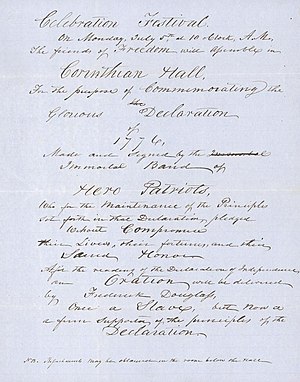 Celebration Festival.
On Monday, July 5th at 10 o'clock, A.M.
The friends of Freedom will Assemble in
Corinthian Hall,
For the purpose of Commemorating the
Glorious Declaration
of
1776,
Made and Signed by the
Immortal Band of
Hero Patriots,
Who for the Maintenance of the Principles
Set forth in that Declaration, pledged
Without Compromise
their Lives, their fortunes, and their
Sacred Honor
After the reading of the Declaration of Independence
an Oration will be delivered
by Frederick Douglass,
Once a Slave, but now a
a firm Supporter of the principles of the
Declaration.
N.B. Refreshments may be obtained in the room below the Hall